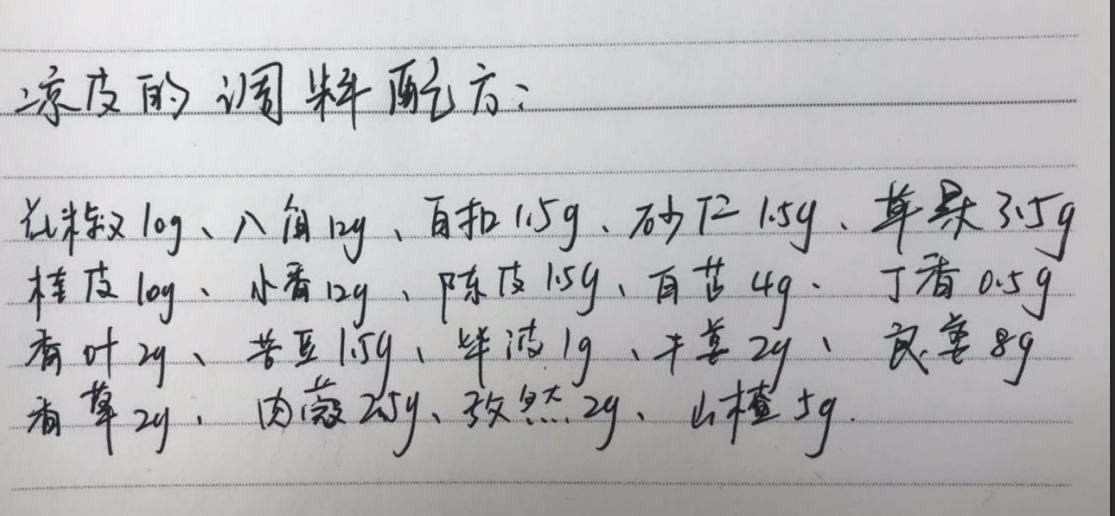 凉皮的调料配方：
花椒10g、八角12g、百扣1.5g、砂仁1.5g、草果3.5g
桂皮10g、小香12g、陈皮1.5g、百芷4g、丁香0.5g
香叶2g、苦豆1.5g、毕波1g、干姜2g、良姜8g
香草2g、肉蔻2.5g、孜然2g、山楂5g.